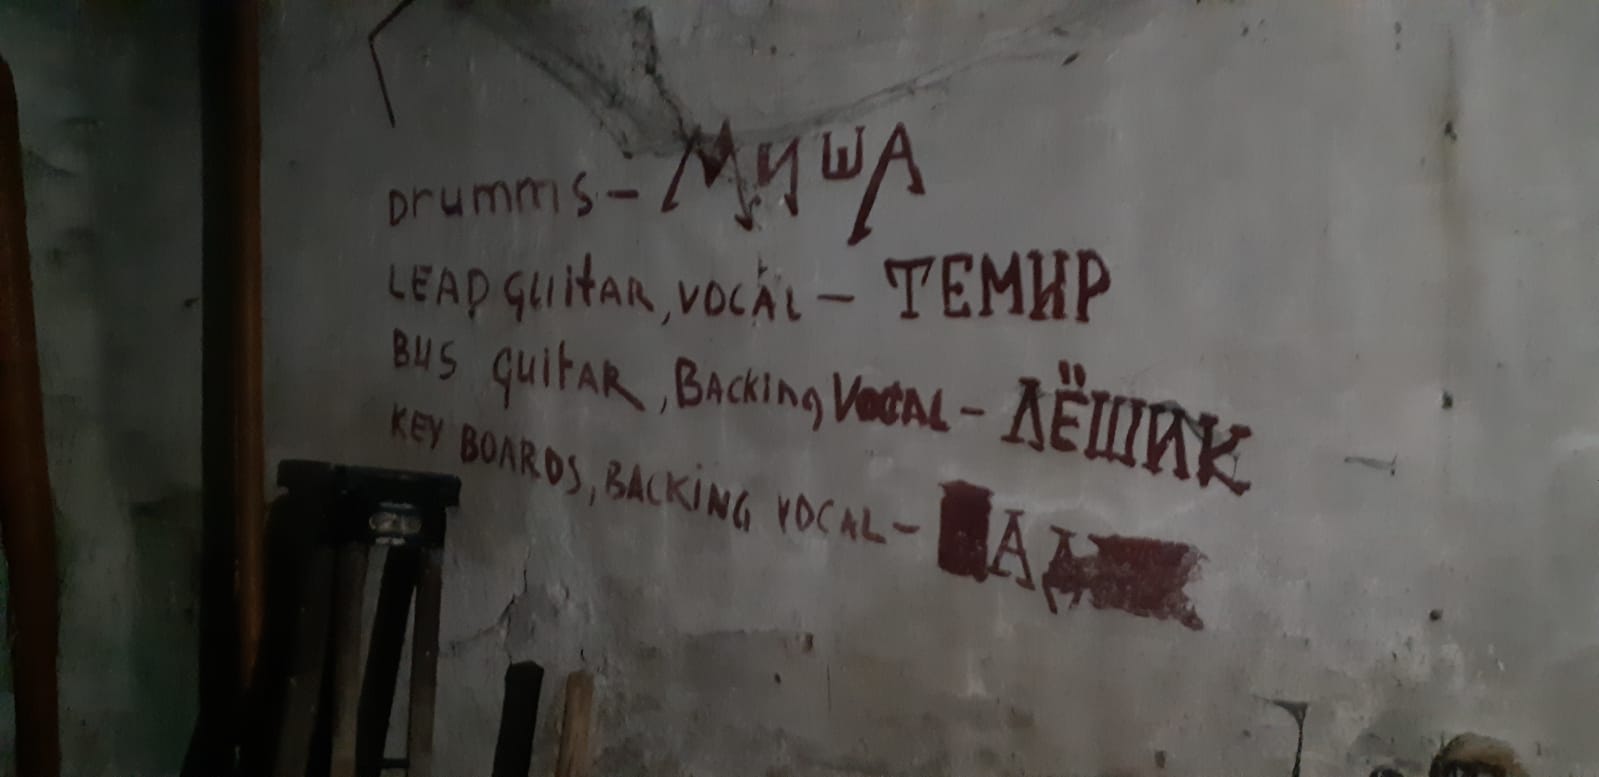 Drumms - МИША
LEAD guitAR, VOCAL - ТЕМИР
BUS guitAR, BAcking VOCAL - ЛЁШИК
KEY BOARDS, BACKiNG VOCAL -